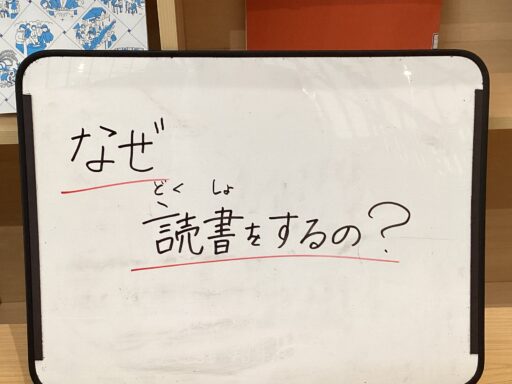 なぜ
どく しょ
読書をするの?